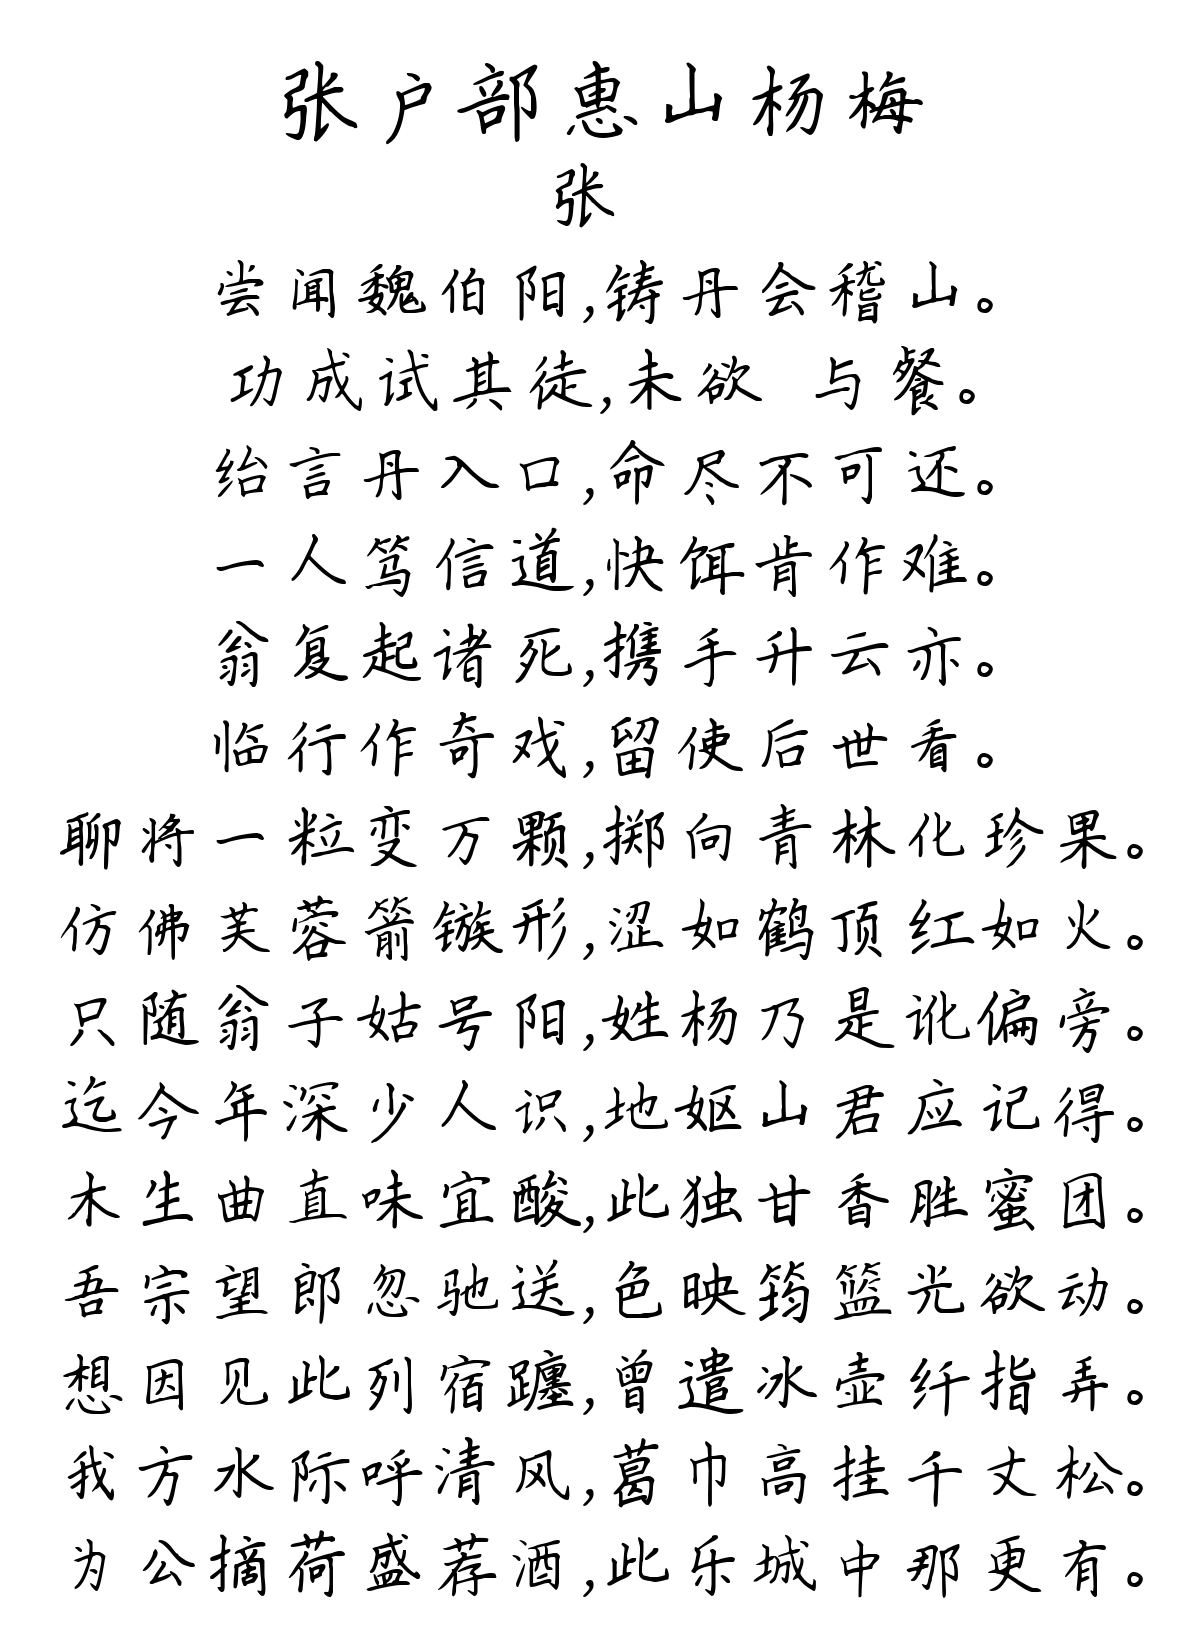 张户部惠山杨梅
张
尝闻魏伯阳,铸丹会稽山。
功成试其徒,未欲 与餐。
绐言丹入口,命尽不可还。
一人笃信道,快饵肯作难。
翁复起诸死,携手升云亦。
临行作奇戏,留使后世看。
聊将一粒变万颗,掷向青林化珍果。
仿佛芙蓉箭镞形,涩如鹤顶红如火。
只随翁子姑号阳,姓杨乃是讹偏旁。
迄今年深少人识,地妪山君应记得。
木生曲直味宜酸,此独甘香胜蜜团。
吾宗望郎忽驰送,色映筠篮光欲动。
想因见此列宿躔,曾遣冰壶纤指弄。
我方水际呼清风,葛巾高挂千丈松。
为公摘荷盛荐酒,此乐城中那更有。